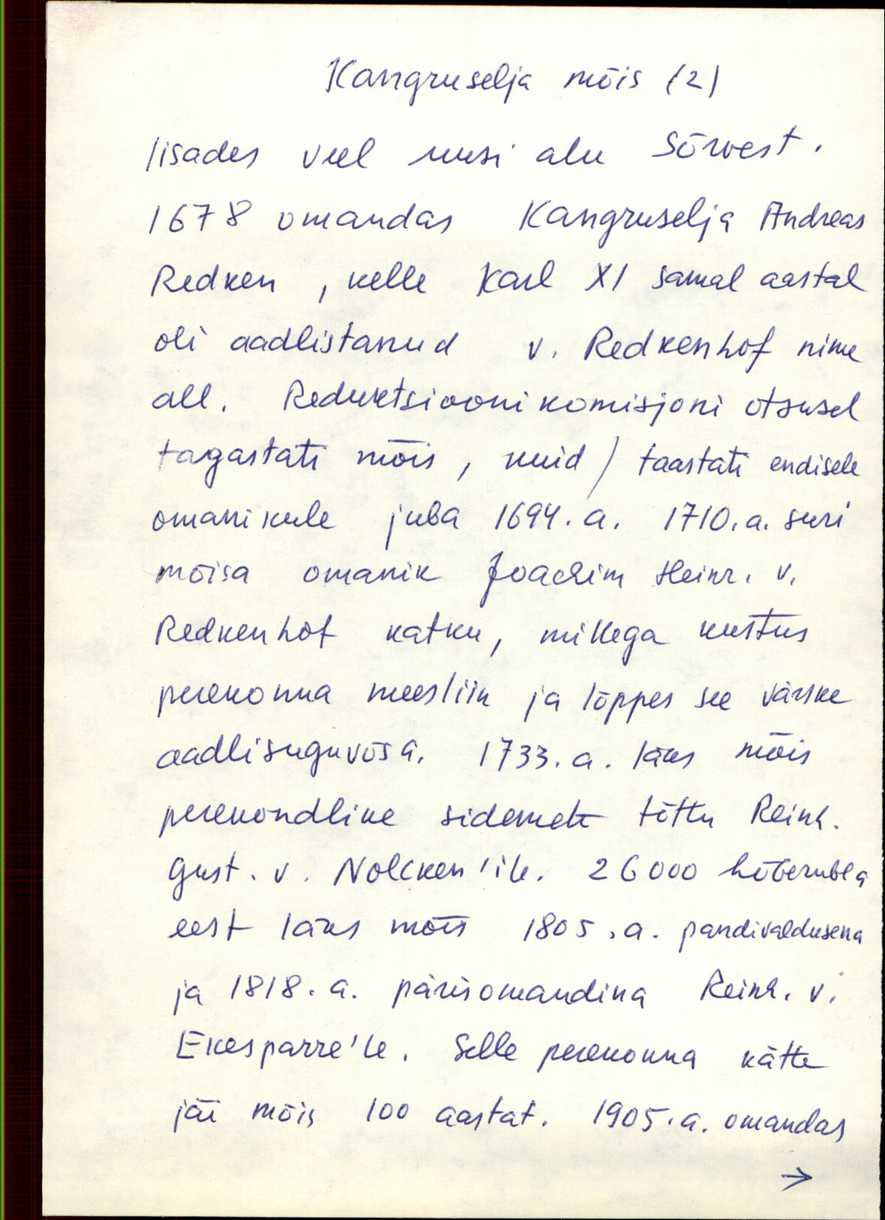 Kangruselja mõis (2)
lisades veel uusi alu Sõrvest.
1678 omandas Kangruselja Andreas
Redken, kelle Karl XI samal aastal
oli aadlistanud v. Redkenhof nime
all. Reduktsioonikomisjoni otsusel
tagastati mõis, kuid / taastati endisele
omanikule juba 1694. a. 1710. a. suri
mõisa omanik Joachim Heinr. v.
Redkenhof katku, millega kustus
perekonna meesliin ja lõppes see värske
aadlisuguvõsa. 1733. a. läks mõis
perekondlike sidemete tõttu Reinh.
Gust. v. Nolcken'ile. 26000 hõberubla
eest läks mõis 1805. a. pandivaldusena
ja 1818. a. pärisomandina Reinh. v.
Ekesparre'le. Selle perekonna kätte
jäi mõis 100 aastat. 1905. a. omandas
→